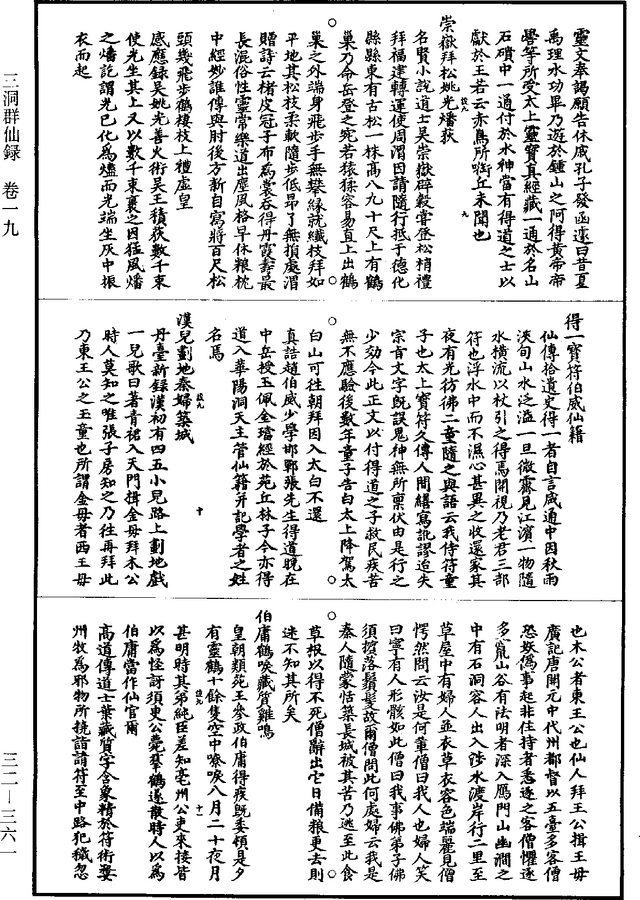 三洞群仙録　卷一九
三二—三六一
靈文奉謁願告休咸孔子發函遠曰昔夏
禹理水功畢乃遊於鍾山之阿得黃帝帝
嚳等所受太上靈寶真經藏一通於名山
石磧中一通付於水神當有得道之士以
獻於王若云赤鳥所㘅丘未聞也
崇嶽拜松姚光燔荻
名賢小說道士吴崇嶽辟穀嘗登松梢禮
拜福建轉運使周渭因請隨行抵于德化
縣縣東有古松一株髙八九十尺上有鶴
巢乃命岳登之宛若猿猱容易直上出鶴
巢之外端身飛步手無攀緣就纖枝拜如
平地其松枝柔軟隨步低昻了無損處渭
贈詩云楮皮冠子布為裳吞得丹霞壽最
長混俗性靈常樂道出塵風格早休粮枕
中經妙誰傳與肘後方新自寫將百尺松
頭幾飛步鶴棲枝上禮虛皇
感應録吴姚光善火術吴王積荻數千束
使光坐其上又以數千束裹之因猛風燔
之燔訖謂光已化為燼而光端坐灰中振
衣而起
得一寳符伯威仙籍
仙傳拾遺史得一者自言咸通中因秋雨
浹旬山水泛溢一旦微霽見江濱一物隨
水橫流以杖引之得焉開視乃老君三部
符也浮水中而不濕心甚異之收還家其
夜有光彷彿二童隨之與語云我侍符童
子也太上寳符久傳人間繕寫訛謬迨失
宗旨文字既誤鬼神無所禀伏由是行之
少効今此正文以付得道之子救民疾苦
無不應驗後數年童子告白太上降駕太
白山可徃朝拜因入太白不還
真誥趙伯威少學邯鄲張先生得道晚在
中岳授玉佩金璫經於苑丘林子今亦得
道入華陽洞天主管仙籍并記學者之姓
名焉
漢兒劃地秦婦築城
丹臺新録漢初有四五小兒路上劃地戲
一兒歌曰著青裙入天門揖金母拜木公
時人莫知之唯張子房知之乃往再拜此
乃東王公之玉童也所謂金母者西王母
也木公者東王公也仙人拜王公揖王母
廣記唐開元中代州都督以五臺多客僧
恐妖偽事起非住持者悉逐之客僧懼逐
多竄山谷有法明者深入鴈門山幽澗之
中有石洞容人出入涉水渡岸行二里至
草屋中有婦人並衣草衣容色端麗見僧
愕然問云汝是何軰僧曰我人也婦人笑
曰寧有人形骸如此僧曰我事佛弟子佛
須擯落鬚髮故爾僧問此何處婦云我是
秦人隨蒙恬築長城被其苦乃逃至此食
草根以得不死僧辭出它日備粮更去則
迷不知其所矣
伯庸鶴唳藏質雞鳴
皇朝類苑王參政伯庸得疾既委頓是夕
有靈鶴十餘隻空中嘹唳八月二十夜月
甚明時其弟純臣差知亳州公吏來接皆
以為怪訝須臾公薨羣鶴遂散時人以為
伯庸當作仙官爾
髙道傳道士葉藏質字含象精於符術婺
州牧為邪物所撓請請符至中路犯穢忽